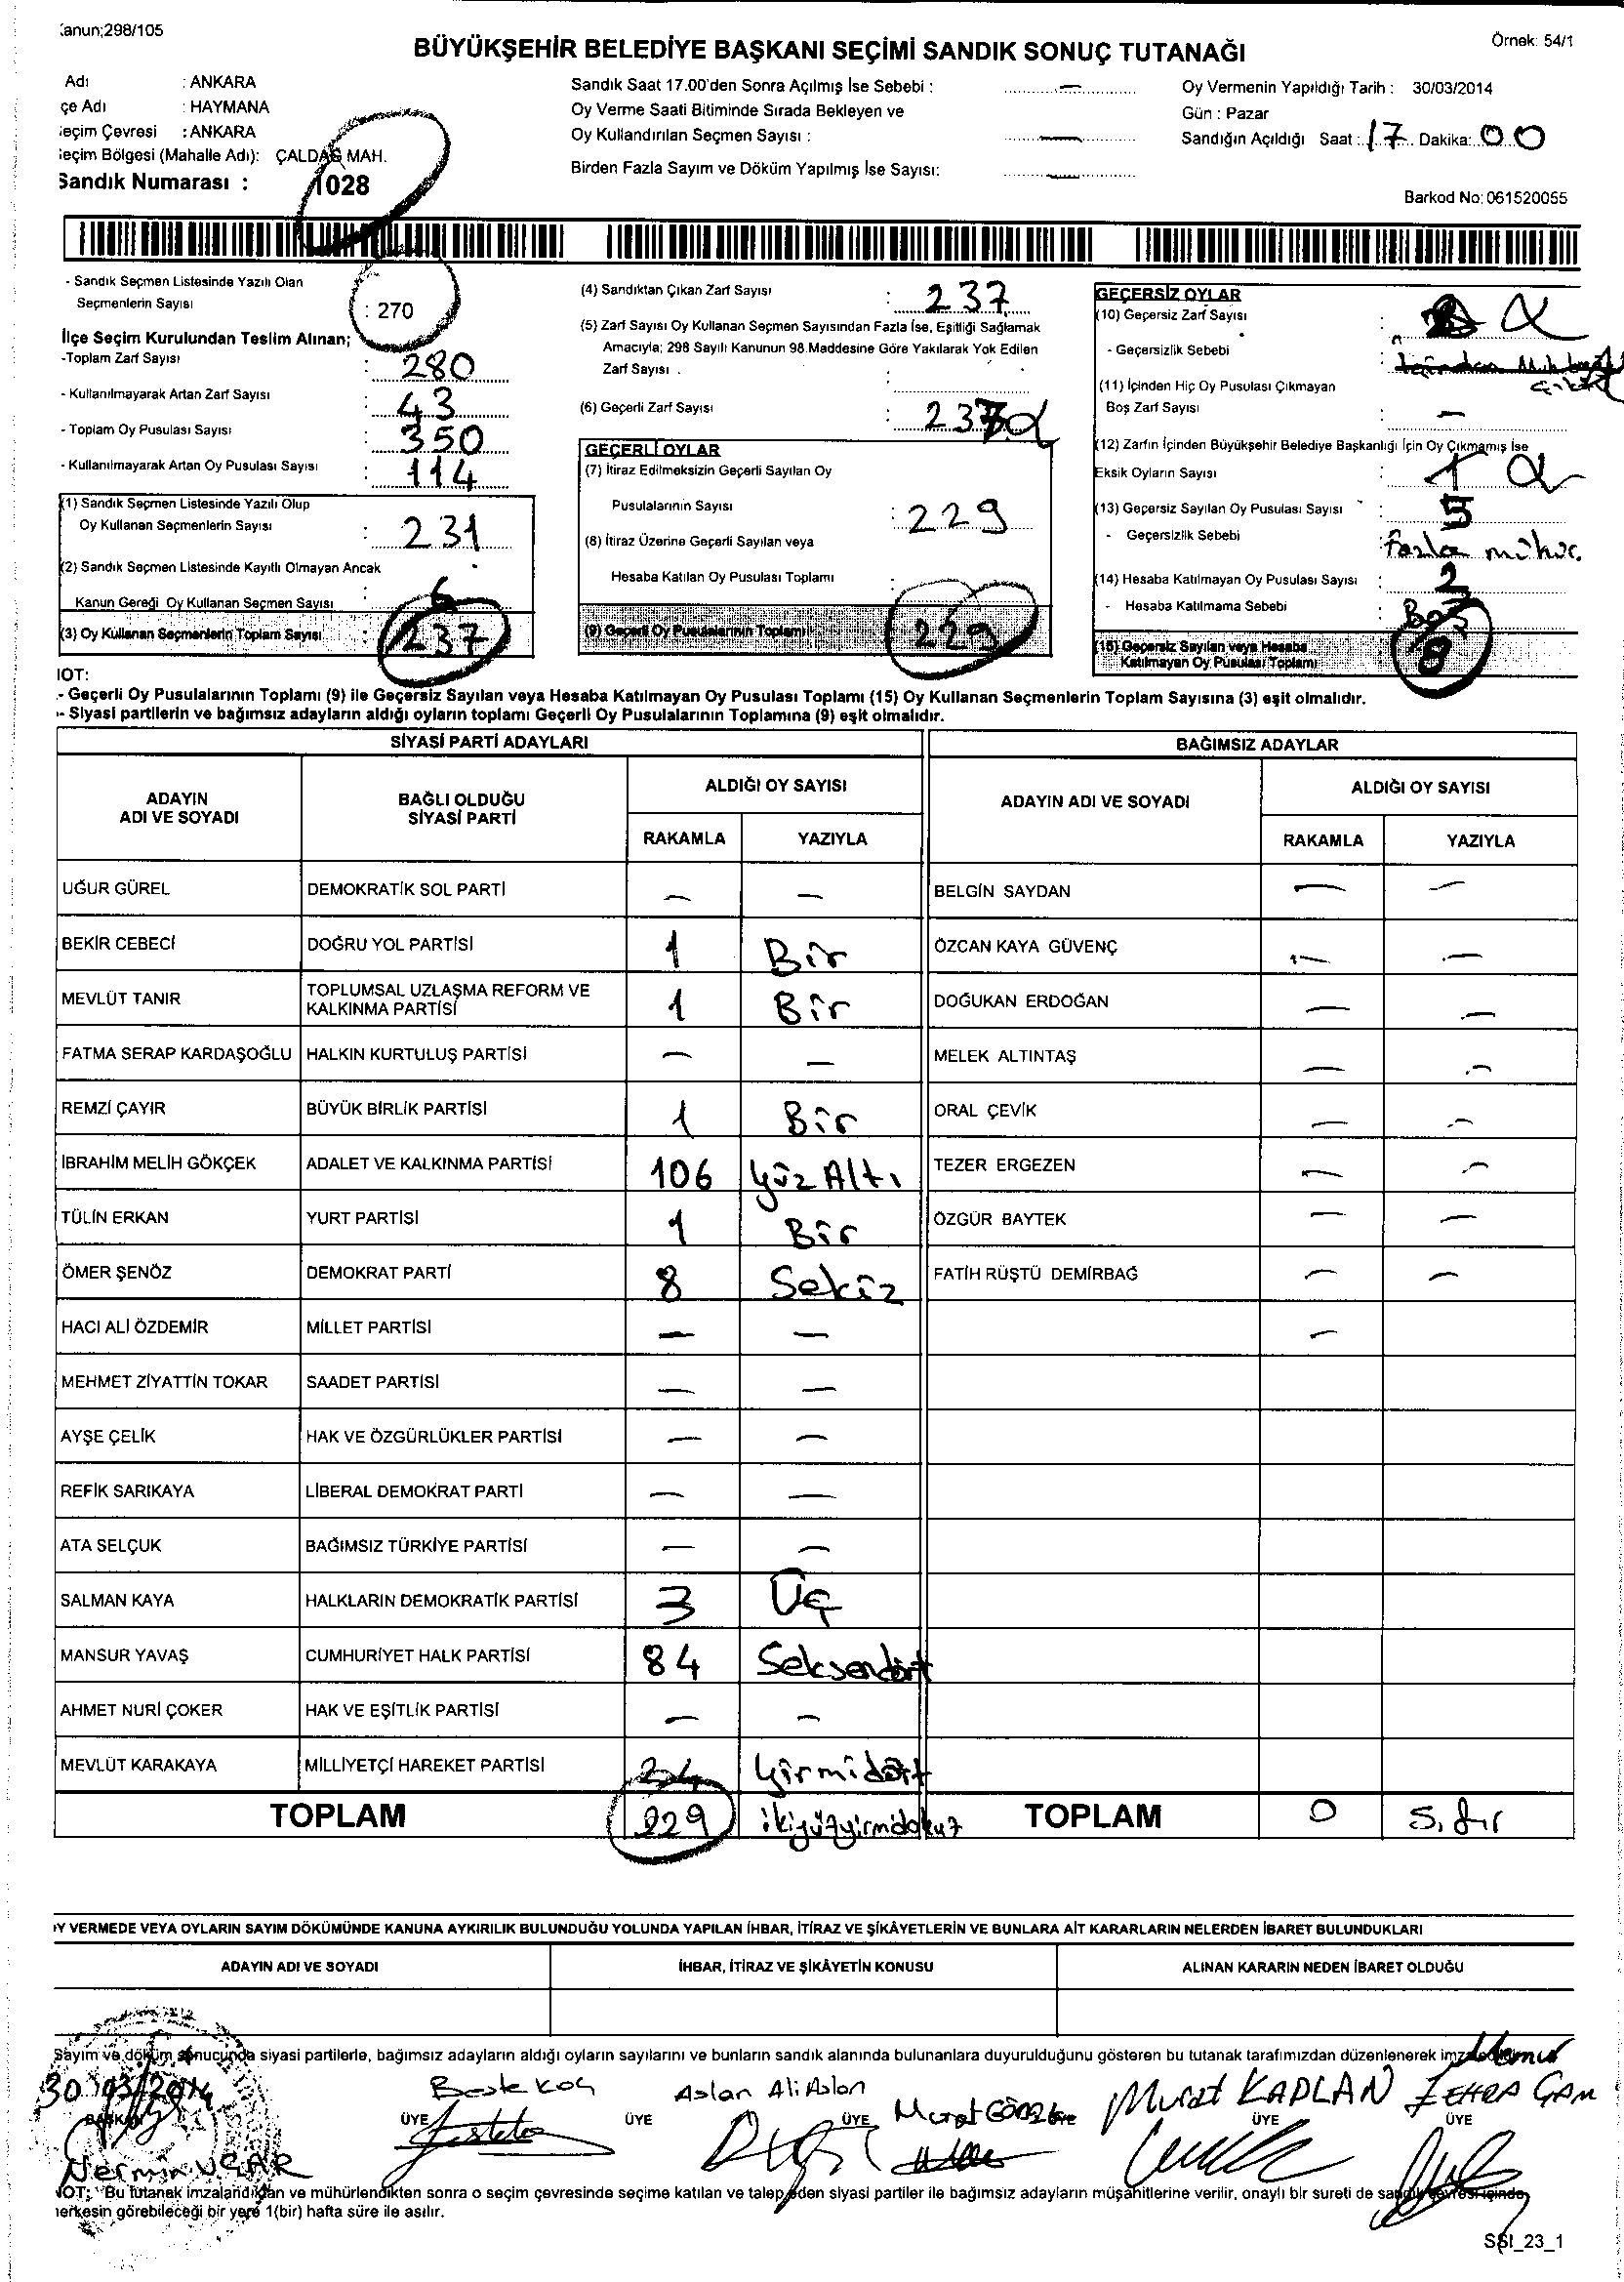 Kanun;298/105
Örnek: 54/1
BÜYÜKŞEHİR BELEDİYE BAŞKANI SEÇİMİ SANDIK SONUÇ TUTANAĞI
Adı : ANKARA
çe Adı : HAYMANA
eçim Çevresi : ANKARA
eçim Bölgesi (Mahalle Adı): ÇALDAĞ MAH.
Sandık Numarası : 1028
Sandık Saat 17.00'den Sonra Açılmış İse Sebebi : —
Oy Verme Saati Bitiminde Sırada Bekleyen ve
Oy Kullandırılan Seçmen Sayısı : —
Birden Fazla Sayım ve Döküm Yapılmış İse Sayısı: —
Oy Vermenin Yapıldığı Tarih : 30/03/2014
Gün : Pazar
Sandığın Açıldığı Saat : 17 Dakika: 00
Barkod No: 061520055
- Sandık Seçmen Listesinde Yazılı Olan
Seçmenlerin Sayısı : 270
İlçe Seçim Kurulundan Teslim Alınan;
-Toplam Zarf Sayısı : 280
- Kullanılmayarak Artan Zarf Sayısı : 43
- Toplam Oy Pusulası Sayısı : 350
- Kullanılmayarak Artan Oy Pusulası Sayısı : 114
(1) Sandık Seçmen Listesinde Yazılı Olup
Oy Kullanan Seçmenlerin Sayısı : 231
(2) Sandık Seçmen Listesinde Kayıtlı Olmayan Ancak
Kanun Gereği Oy Kullanan Seçmen Sayısı : 6
(3) Oy Kullanan Seçmenlerin Toplam Sayısı : 237
(4) Sandıktan Çıkan Zarf Sayısı : 237
(5) Zarf Sayısı Oy Kullanan Seçmen Sayısından Fazla İse, Eşitliği Sağlamak
Amacıyla; 298 Sayılı Kanunun 98.Maddesine Göre Yakılarak Yok Edilen
Zarf Sayısı :
(6) Geçerli Zarf Sayısı : 237
GEÇERLİ OYLAR
(7) İtiraz Edilmeksizin Geçerli Sayılan Oy
Pusulalarının Sayısı : 229
(8) İtiraz Üzerine Geçerli Sayılan veya
Hesaba Katılan Oy Pusulası Toplamı :
(9) Geçerli Oy Pusulalarının Toplamı : 229
GEÇERSİZ OYLAR
(10) Geçersiz Zarf Sayısı :
- Geçersizlik Sebebi :
(11) İçinden Hiç Oy Pusulası Çıkmayan
Boş Zarf Sayısı : —
(12) Zarfın İçinden Büyükşehir Belediye Başkanlığı İçin Oy Çıkmamış İse
Eksik Oyların Sayısı : 1
(13) Geçersiz Sayılan Oy Pusulası Sayısı : 5
- Geçersizlik Sebebi : Fazla mühür.
(14) Hesaba Katılmayan Oy Pusulası Sayısı : 2
- Hesaba Katılmama Sebebi : Boş
(15) Geçersiz Sayılan veya Hesaba
Katılmayan Oy Pusulası Toplamı : 8
NOT:
- Geçerli Oy Pusulalarının Toplamı (9) ile Geçersiz Sayılan veya Hesaba Katılmayan Oy Pusulası Toplamı (15) Oy Kullanan Seçmenlerin Toplam Sayısına (3) eşit olmalıdır.
- Siyasi partilerin ve bağımsız adayların aldığı oyların toplamı Geçerli Oy Pusulalarının Toplamına (9) eşit olmalıdır.
SİYASİ PARTİ ADAYLARI BAĞIMSIZ ADAYLAR
ADAYIN ADI VE SOYADI BAĞLI OLDUĞU SİYASİ PARTİ ALDIĞI OY SAYISI ADAYIN ADI VE SOYADI ALDIĞI OY SAYISI
RAKAMLA YAZIYLA RAKAMLA YAZIYLA
UĞUR GÜREL DEMOKRATİK SOL PARTİ — — BELGİN SAYDAN — —
BEKİR CEBECİ DOĞRU YOL PARTİSİ 1 Bir ÖZCAN KAYA GÜVENÇ — —
MEVLÜT TANIR TOPLUMSAL UZLAŞMA REFORM VE KALKINMA PARTİSİ 1 Bir DOĞUKAN ERDOĞAN — —
FATMA SERAP KARDAŞOĞLU HALKIN KURTULUŞ PARTİSİ — — MELEK ALTINTAŞ — —
REMZİ ÇAYIR BÜYÜK BİRLİK PARTİSİ 1 Bir ORAL ÇEVİK — —
İBRAHİM MELİH GÖKÇEK ADALET VE KALKINMA PARTİSİ 106 Yüz Altı TEZER ERGEZEN — —
TÜLİN ERKAN YURT PARTİSİ 1 Bir ÖZGÜR BAYTEK — —
ÖMER ŞENÖZ DEMOKRAT PARTİ 8 Sekiz FATİH RÜŞTÜ DEMİRBAĞ — —
HACI ALİ ÖZDEMİR MİLLET PARTİSİ — — —
MEHMET ZİYATTİN TOKAR SAADET PARTİSİ — —
AYŞE ÇELİK HAK VE ÖZGÜRLÜKLER PARTİSİ — —
REFİK SARIKAYA LİBERAL DEMOKRAT PARTİ — —
ATA SELÇUK BAĞIMSIZ TÜRKİYE PARTİSİ — —
SALMAN KAYA HALKLARIN DEMOKRATİK PARTİSİ 3 Üç
MANSUR YAVAŞ CUMHURİYET HALK PARTİSİ 84 Seksendört
AHMET NURİ ÇOKER HAK VE EŞİTLİK PARTİSİ — —
MEVLÜT KARAKAYA MİLLİYETÇİ HAREKET PARTİSİ 24 Yirmidört
TOPLAM 229 ikiyüzyirmidokuz TOPLAM 0 Sıfır
OY VERMEDE VEYA OYLARIN SAYIM DÖKÜMÜNDE KANUNA AYKIRILIK BULUNDUĞU YOLUNDA YAPILAN İHBAR, İTİRAZ VE ŞİKÂYETLERİN VE BUNLARA AİT KARARLARIN NELERDEN İBARET BULUNDUKLARI
ADAYIN ADI VE SOYADI İHBAR, İTİRAZ VE ŞİKÂYETİN KONUSU ALINAN KARARIN NEDEN İBARET OLDUĞU
Sayım ve döküm sonucunda siyasi partilerle, bağımsız adayların aldığı oyların sayılarını ve bunların sandık alanında bulunanlara duyurulduğunu gösteren bu tutanak tarafımızdan düzenlenerek
Memur
30/03/2014 Beste Koç Aslan Ali Aslan Murat Murat KAPLAN ZEHRA ÇAM
BAŞKAN ÜYE ÜYE ÜYE ÜYE ÜYE
Nermin UÇAR
NOT: Bu tutanak imzalandıktan ve mühürlendikten sonra o seçim çevresinde seçime katılan ve talep eden siyasi partiler ile bağımsız adayların müşahitlerine verilir, onaylı bir sureti de sandık çevresi içinde
herkesin görebileceği bir yere 1(bir) hafta süre ile asılır.
SSI_23_1